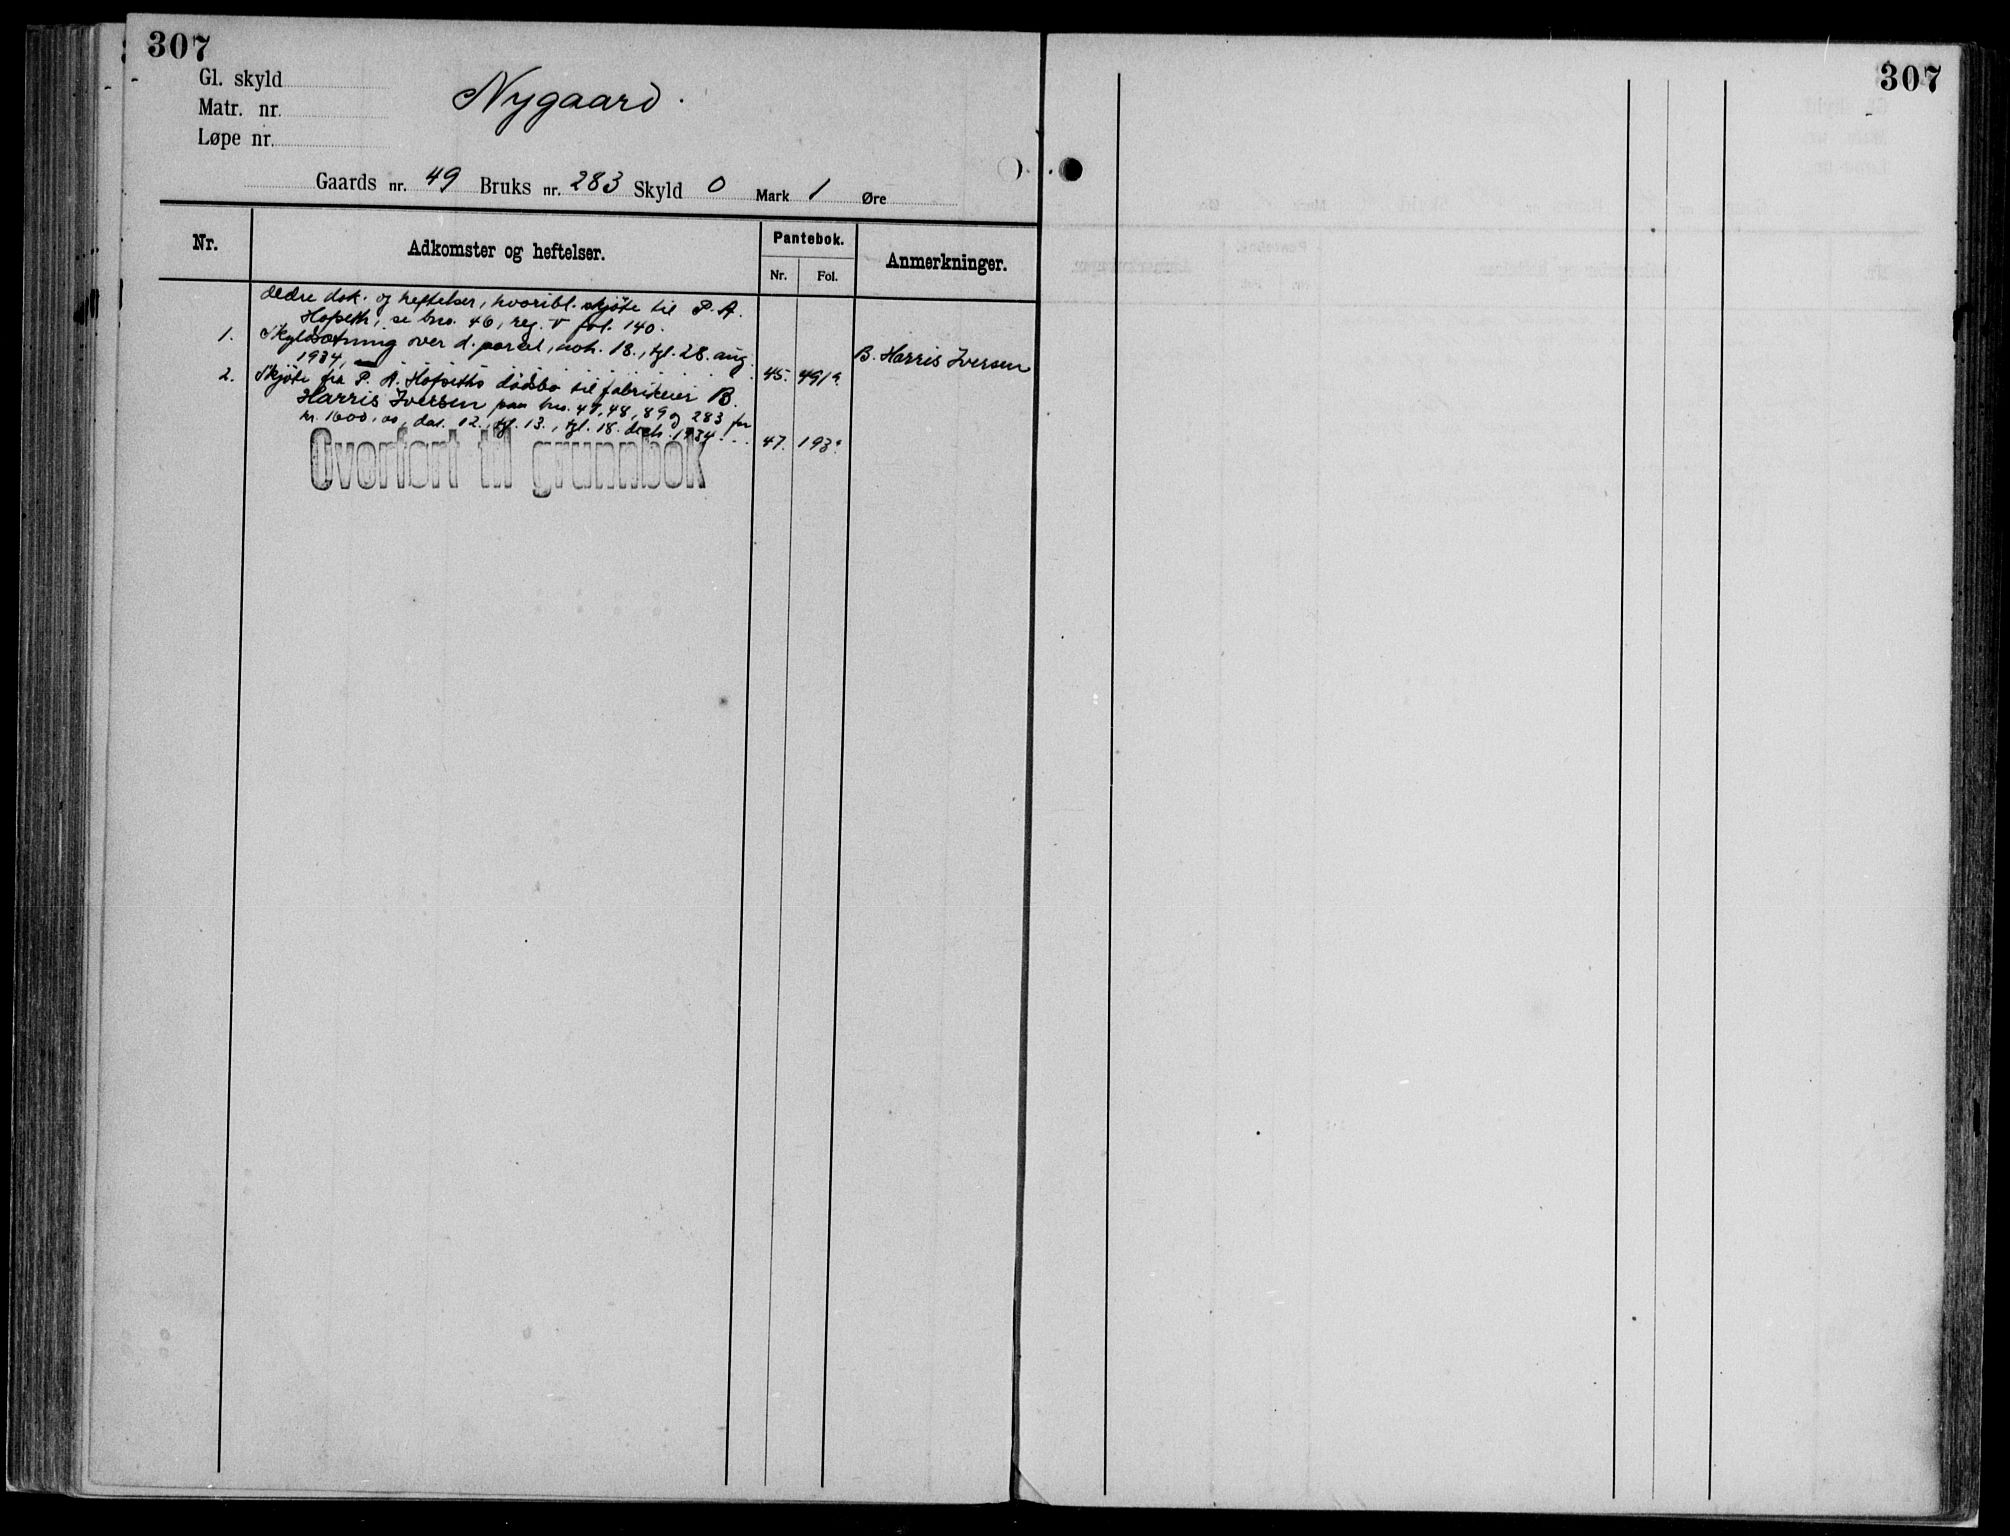 307
307
Gl. skyld
Matr. nr.
Løpe nr.
Nygaard.
Gaards nr. 49 Bruks nr. 283 Skyld 0 Mark 1 Øre
Nr. Adkomster og heftelser. Pantebok. Anmerkninger.
Nr. Fol.
Ældre dok. og heftelser, hvoribl. skjøte til P. A.
Hofseth, se bno. 46, reg. V fol. 140.
1. Skyldsætning over d. parcel, avh. 18., tgl. 28. aug.
1934, 45. 491a.
B. Harris Iversen
2. Skjøte fra P. A. Hofseths dødsbo til fabrikeier B.
Harris Iversen paa bno. 47, 48, 89 og 283 for
kr. 1600,00, dat. 12., tgl. 13., tgl. 18. decb. 1934. 47. 193
Overført til grunnbok